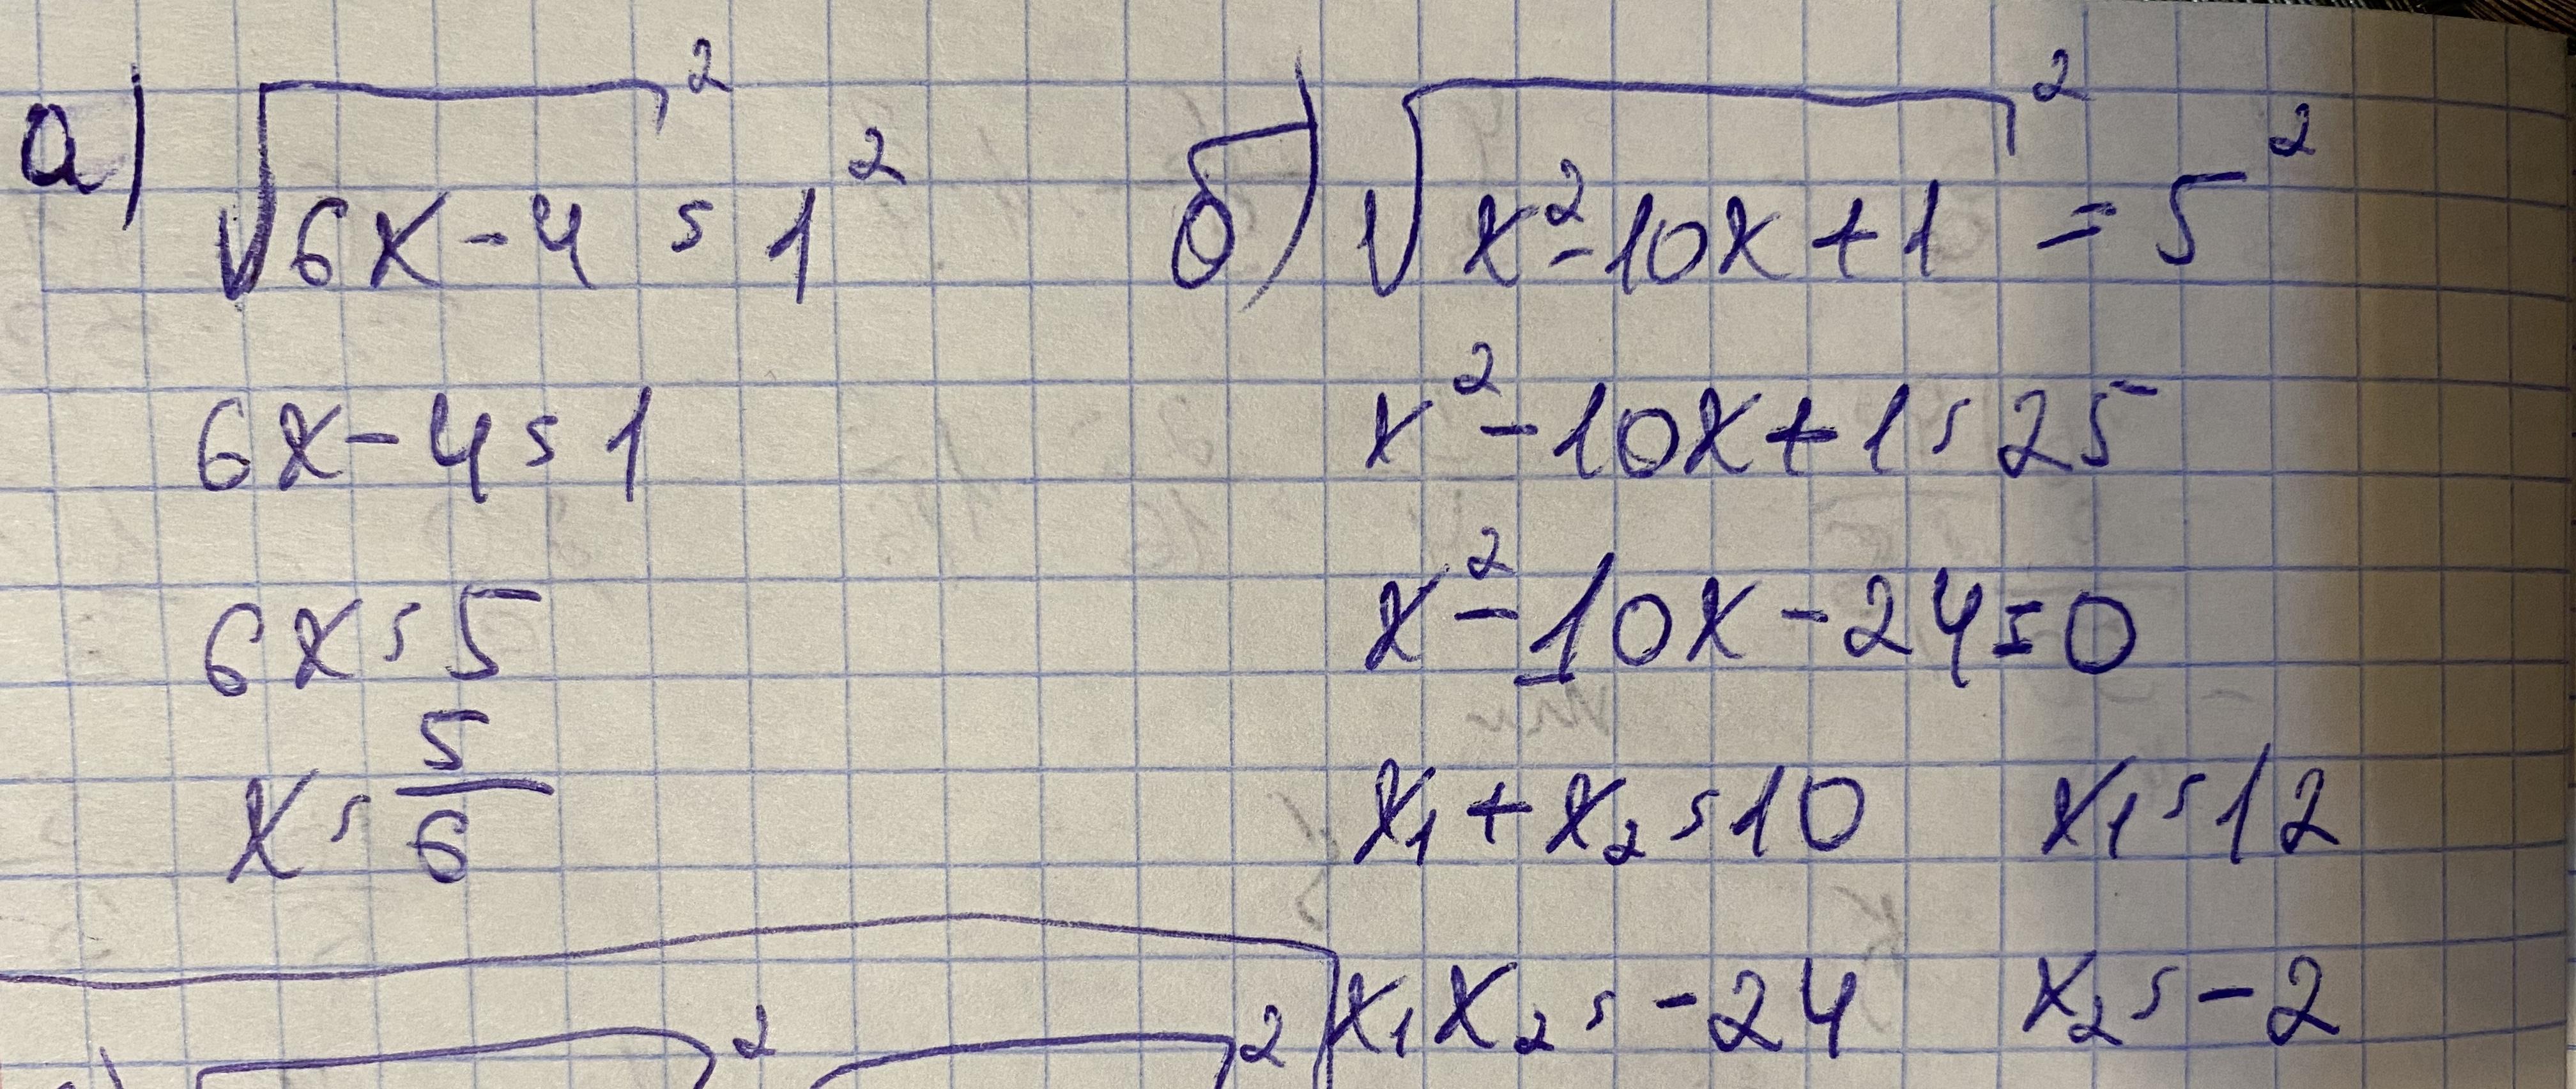 а) √(6x-4)² = 1²
6x-4 = 1
6x = 5
x = 5/6
б) √(x²-10x+1)² = 5²
x²-10x+1 = 25
x²-10x-24 = 0
x₁+x₂ = 10 x₁ = 12
x₁x₂ = -24 x₂ = -2
2 2